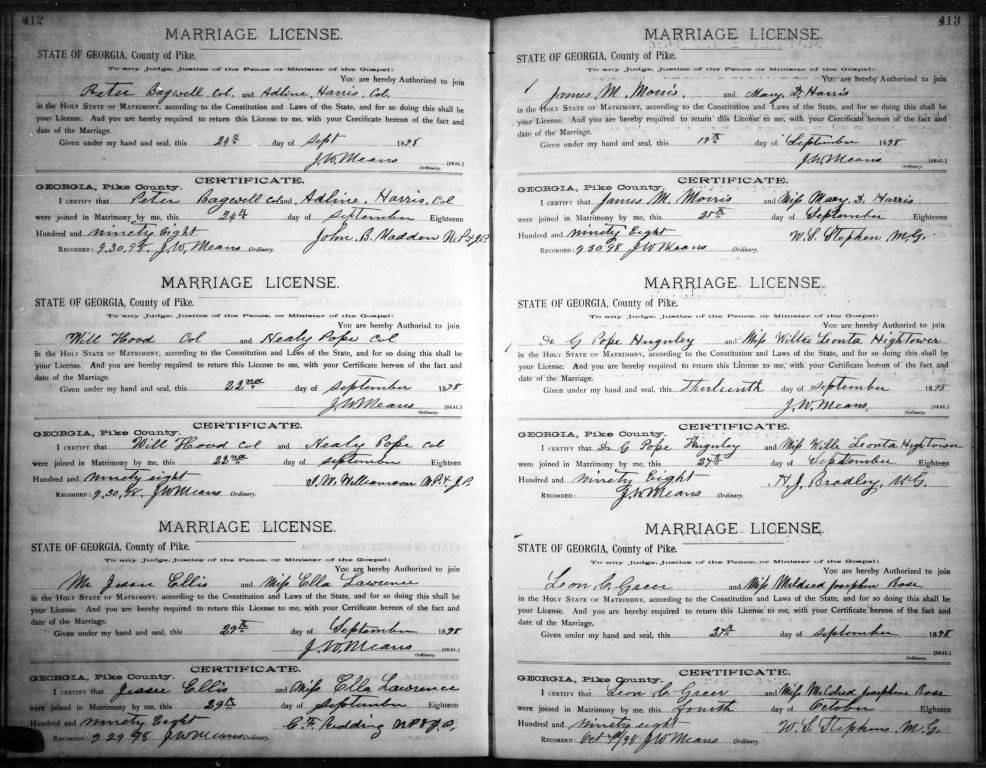 412
MARRIAGE LICENSE.
STATE OF GEORGIA, County of Pike.
To any Judge, Justice of the Peace or Minister of the Gospel:
You are hereby Authorized to join
Peter Bagwell Col. and Adline Harris Col.
in the HOLY STATE OF MATRIMONY, according to the Constitution and Laws of the State, and for so doing this shall be
your License. And you are hereby required to return this License to me, with your Certificate hereon of the fact and
date of the Marriage.
Given under my hand and seal, this 24th day of Sept 1898
J. W. Means [SEAL.]
Ordinary.
CERTIFICATE.
GEORGIA, Pike County.
I CERTIFY that Peter Bagwell Col and Adline Harris, Col
were joined in Matrimony by me, this 24th day of September Eighteen
Hundred and ninety Eight John B. Madden N.P. & J.P.
RECORDED: 9.30.98 J. W. Means Ordinary.
MARRIAGE LICENSE.
STATE OF GEORGIA, County of Pike.
To any Judge, Justice of the Peace, or Minister of the Gospel:
You are hereby Authorized to join
Will Hood Col and Nealy Pope Col
in the HOLY STATE OF MATRIMONY, according to the Constitution and Laws of the State, and for so doing this shall be
your License. And you are hereby required to return this License to me, with your Certificate hereon of the fact and
date of the Marriage.
Given under my hand and seal, this 22nd day of September 1898
J. W. Means [SEAL.]
Ordinary.
CERTIFICATE.
GEORGIA, Pike County.
I CERTIFY that Will Hood Col and Nealy Pope Col
were joined in Matrimony by me, this 22nd day of September Eighteen
Hundred and Ninety eight Williamson N.P. & J.P.
RECORDED: 9.30.98. J W Means Ordinary.
MARRIAGE LICENSE.
STATE OF GEORGIA, County of Pike.
To any Judge, Justice of the Peace, or Minister of the Gospel:
You are hereby Authorized to join
Mr Jessee Ellis and Miss Ella Lawrence
in the HOLY STATE OF MATRIMONY, according to the Constitution and Laws of the State, and for so doing this shall be
your License. And you are hereby required to return this License to me, with your Certificate hereon of the fact and
date of the Marriage.
Given under my hand and seal, this 29th day of September 1898
J. W. Means [SEAL.]
Ordinary.
CERTIFICATE.
GEORGIA, Pike County.
I CERTIFY that Jessee Ellis and Miss Ella Lawrence
were joined in Matrimony by me, this 29th day of September Eighteen
Hundred and Ninety Eight C. F. Redding N.P. & J.P.
RECORDED: 9 29 98 J W Means Ordinary.
413
MARRIAGE LICENSE.
STATE OF GEORGIA, County of Pike.
To any Judge, Justice of the Peace or Minister of the Gospel:
You are hereby Authorized to join
James M. Morris, and Mary D. Harris
in the HOLY STATE OF MATRIMONY, according to the Constitution and Laws of the State, and for so doing this shall be
your License. And you are hereby required to return this License to me, with your Certificate hereon of the fact and
date of the Marriage.
Given under my hand and seal, this 19th day of September 1898
J. W. Means [SEAL.]
Ordinary.
CERTIFICATE.
GEORGIA, Pike County.
I CERTIFY that James M. Morris and Miss Mary D. Harris
were joined in Matrimony by me, this 25th day of September Eighteen
Hundred and Ninety Eight W. S. Stephen M.G.
RECORDED: 9 30 98 J W Means Ordinary.
MARRIAGE LICENSE.
STATE OF GEORGIA, County of Pike.
To any Judge, Justice of the Peace, or Minister of the Gospel:
You are hereby Authorized to join
Dr G Pope Huguley and Miss Willie Leonta Hightower
in the HOLY STATE OF MATRIMONY, according to the Constitution and Laws of the State, and for so doing this shall be
your License. And you are hereby required to return this License to me, with your Certificate hereon of the fact and
date of the Marriage.
Given under my hand and seal, this Thirteenth day of September 1898
J. W. Means, [SEAL.]
Ordinary.
CERTIFICATE.
GEORGIA, Pike County.
I CERTIFY that Dr G Pope Huguley and Miss Willie Leonta Hightower
were joined in Matrimony by me, this 27th day of September Eighteen
Hundred and Ninety Eight H. J. Bradley, M.G.
RECORDED: J. W. Means Ordinary.
MARRIAGE LICENSE.
STATE OF GEORGIA, County of Pike.
To any Judge, Justice of the Peace, or Minister of the Gospel:
You are hereby Authorized to join
Leon C. Greer and Miss Mildred Josephen Bose
in the HOLY STATE OF MATRIMONY, according to the Constitution and Laws of the State, and for so doing this shall be
your License. And you are hereby required to return this License to me, with your Certificate hereon of the fact and
date of the Marriage.
Given under my hand and seal, this day of September 1898
[SEAL.]
Ordinary.
CERTIFICATE.
GEORGIA, Pike County.
I CERTIFY that Leon C. Greer and Miss Mildred Josephene Bose
were joined in Matrimony by me, this Fourth day of October Eighteen
Hundred and Ninety eight W. S. Stephens, M.G.
RECORDED: Oct 4th/98 J W Means Ordinary.